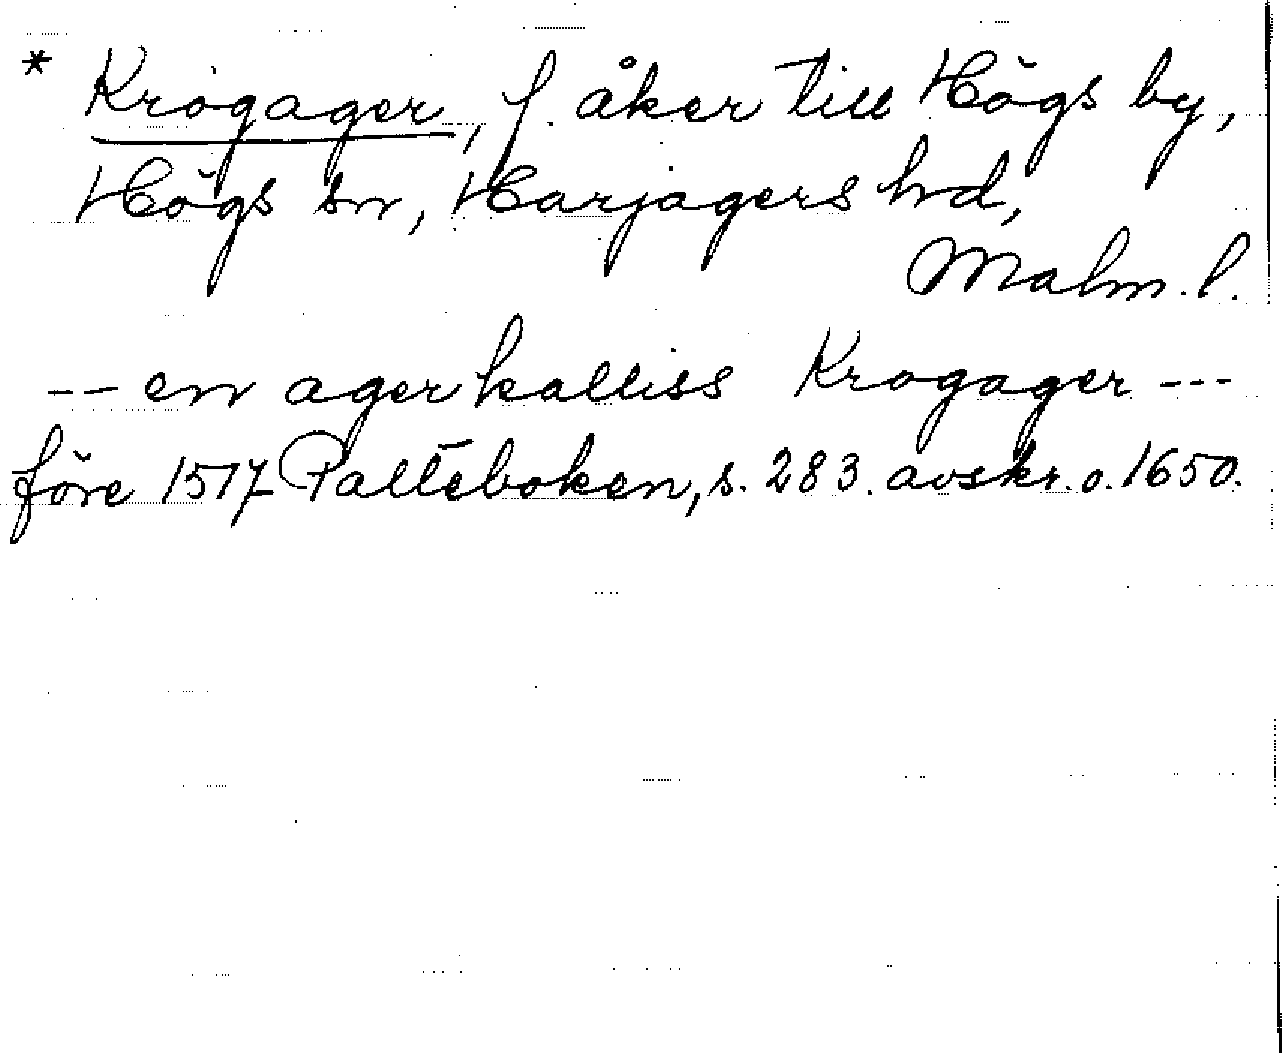 * Krogager, f. åker till Högs by,
Högs sn, Harjagers hd,
Malm. l.
-- en ager kalliss Krogager ---
före 1517 Palteboken, s. 283. avskr. o. 1650.